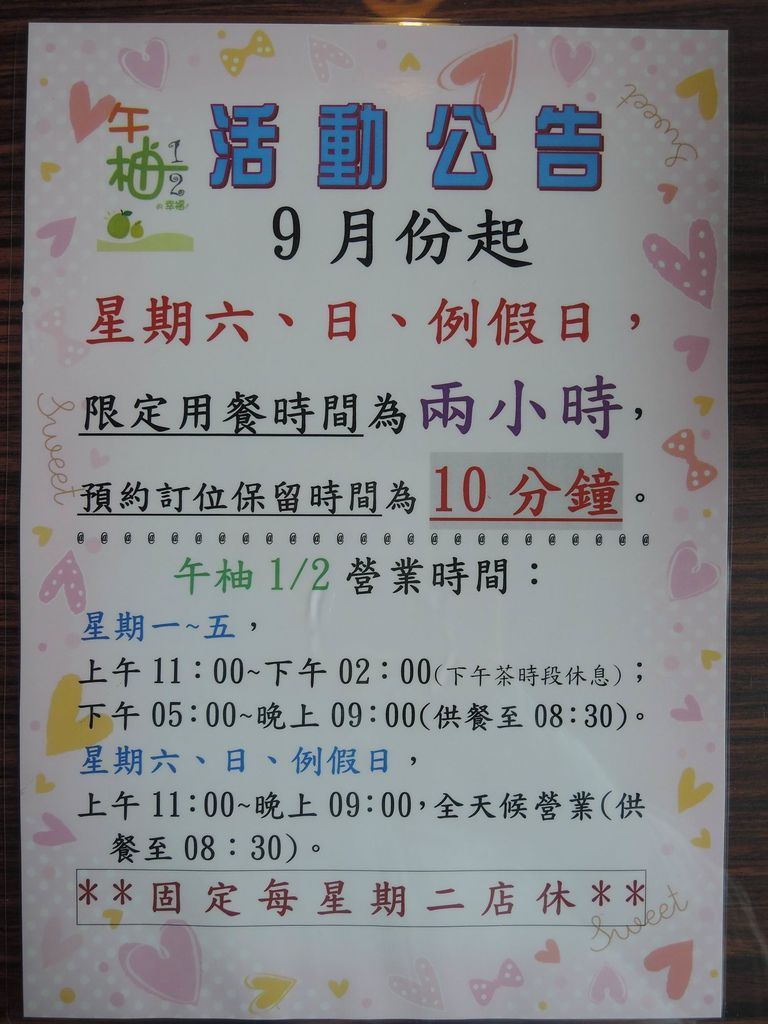 午柚 1/2
の幸福!
活動公告
9月份起
星期六、日、例假日，
限定用餐時間為兩小時，
預約訂位保留時間為 10 分鐘。
@ @ @ @ @ @ @ @ @ @ @ @ @ @ @ @ @ @ @ @ @ @ @ @ @
午柚 1/2 營業時間：
星期一~五，
上午 11：00~下午 02：00(下午茶時段休息)；
下午 05:00~晚上 09:00(供餐至 08:30)。
星期六、日、例假日，
上午 11:00~晚上 09:00，全天候營業(供
餐至 08：30)。
**固定每星期二店休**
Sweet
Sweet
Sweet